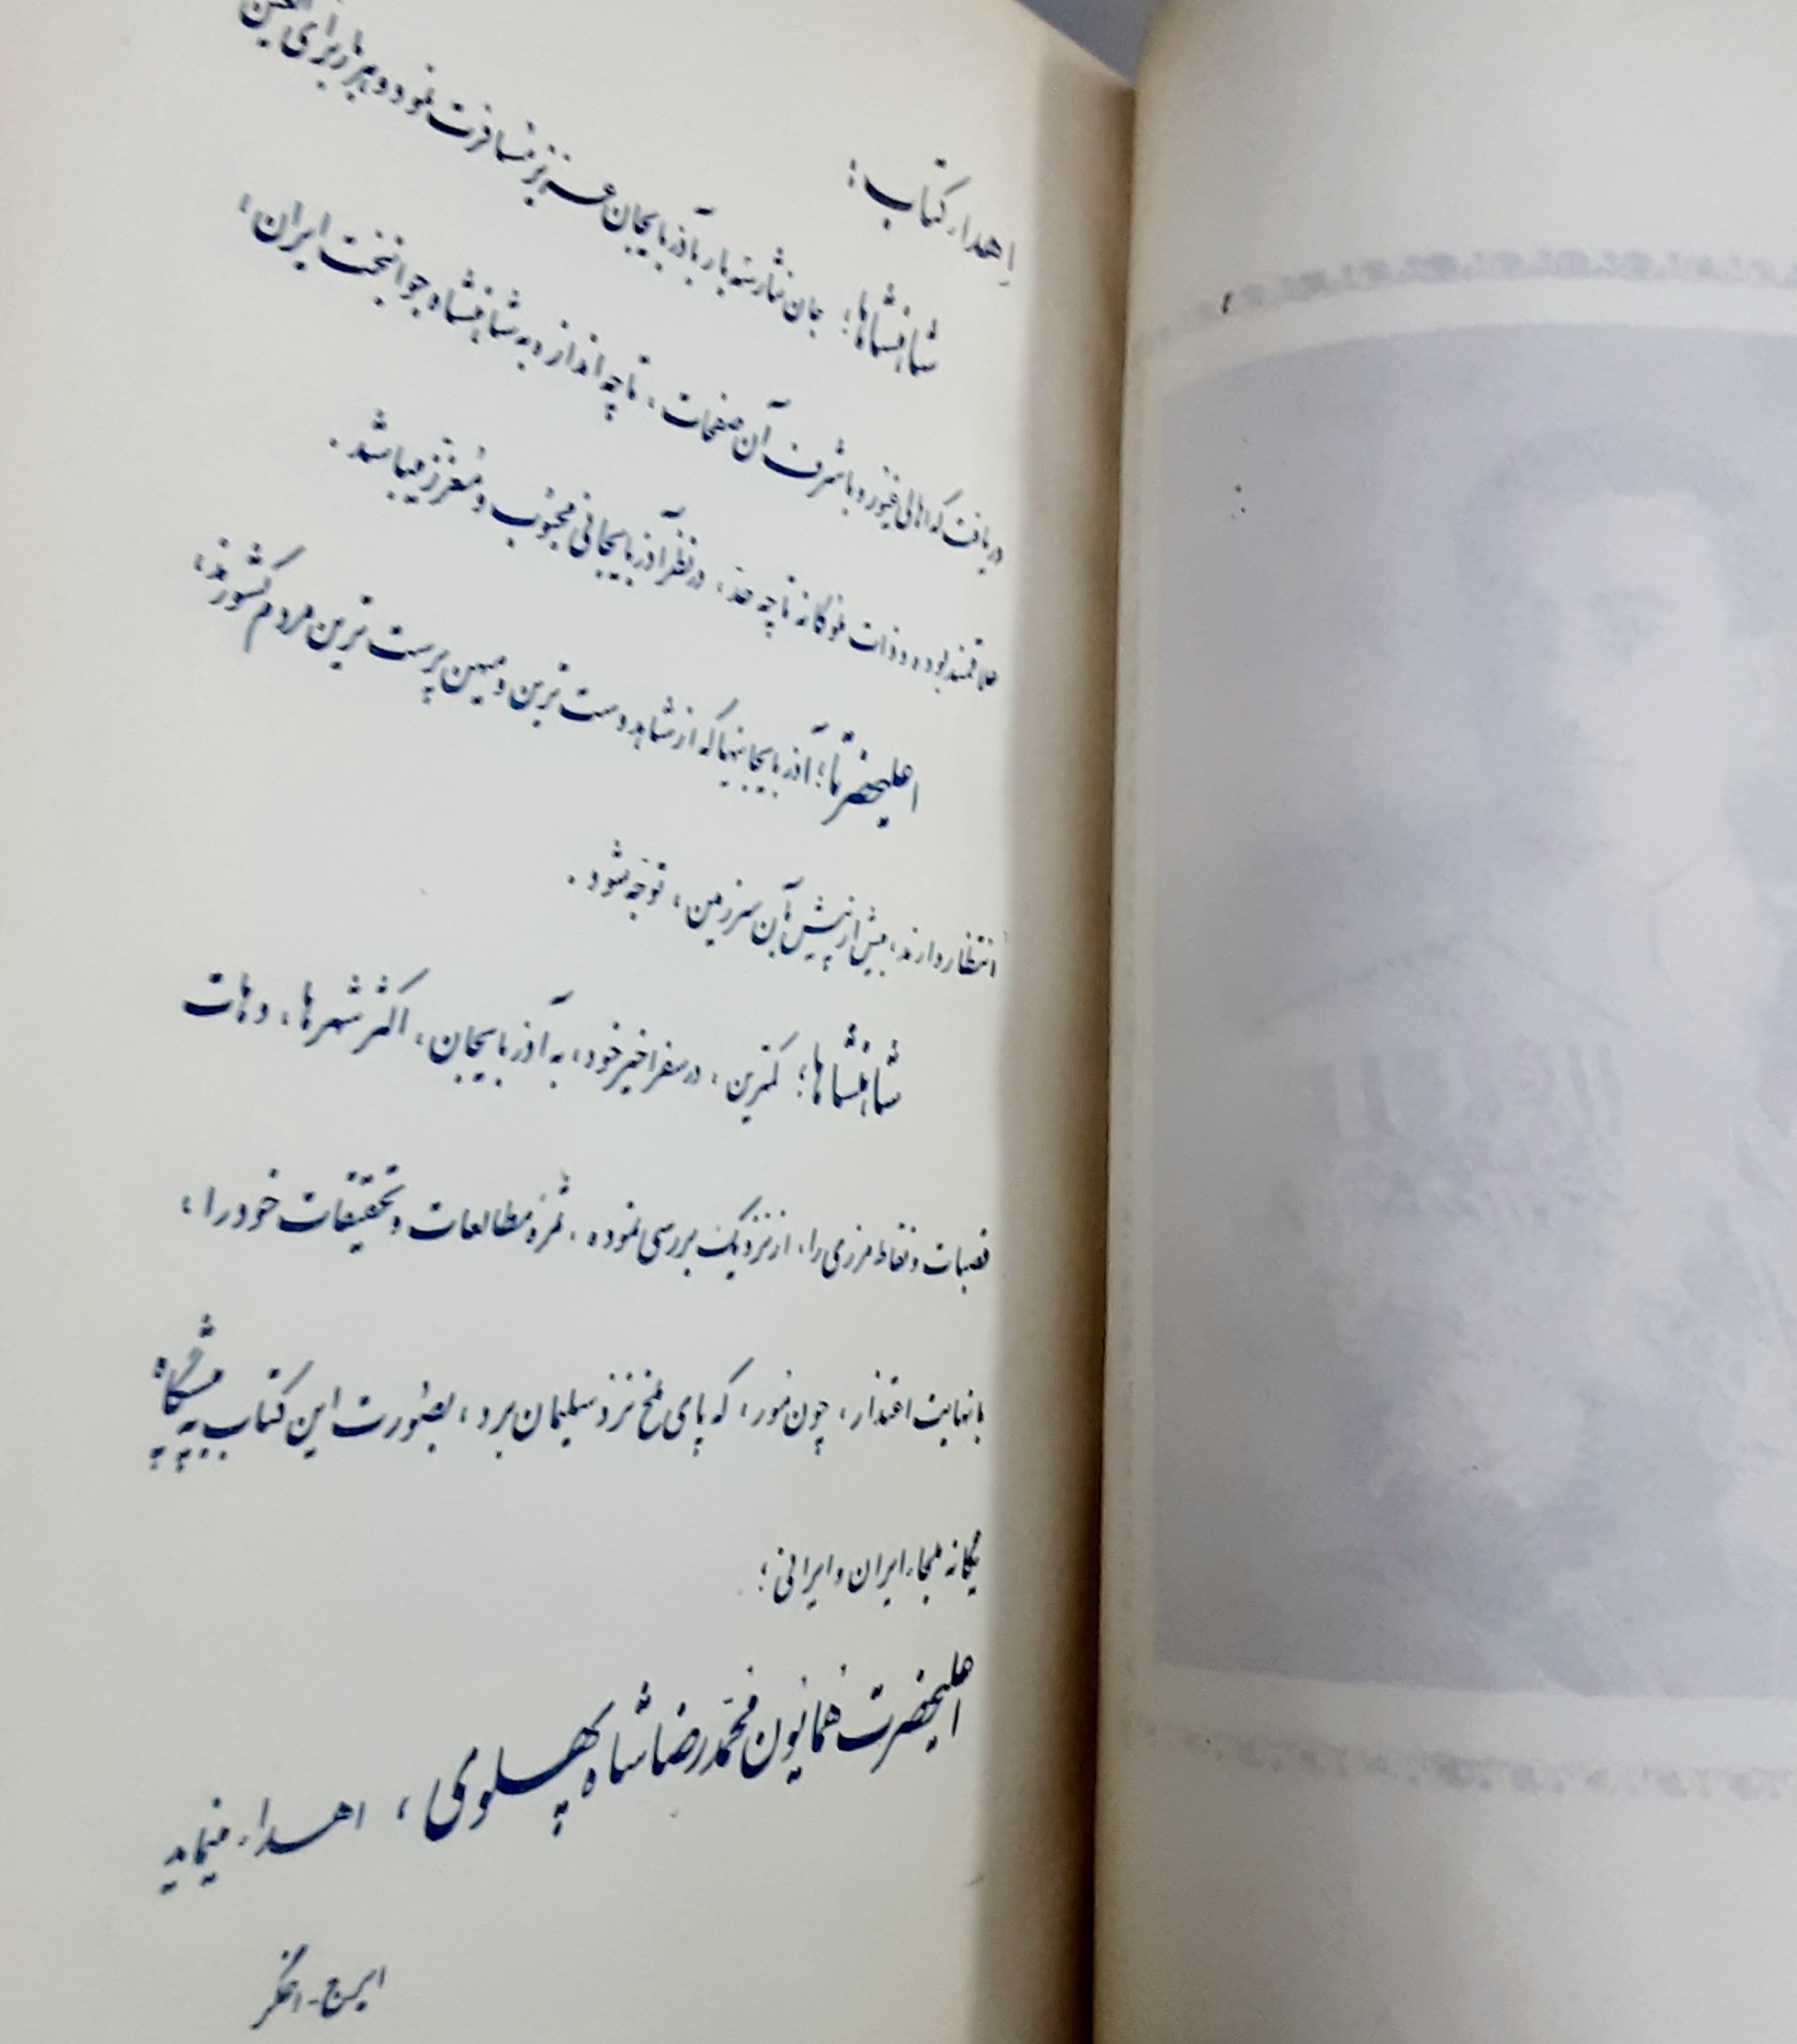 اهداء کتاب:
شاهنشاها؛ جان نثار سه بار بآذربایجان عزیز مسافرت نمود و هر بار برای العین
دریافت که اهالی غیور و با شرف آن صفحات، تا چه اندازه به شاهنشاه جوانبخت ایران،
علاقمند بوده و ذات ملوکانه تا چه حد، در نظر آذربایجانی محبوب و معزز میباشد.
اعلیحضرتا؛ آذربایجانیها که از شاهدوست ترین و میهن پرست ترین مردم کشورند،
انتظار دارند، بیش از پیش بآن سرزمین، توجه شود.
شاهنشاها؛ کمترین، در سفر اخیر خود، به آذربایجان، اکثر شهرها، دهات
قصبات و نقاط مرزی را، از نزدیک بررسی نموده، ثمره مطالعات و تحقیقات خود را،
با نهایت اعتذار، چون مور، که پای ملخ نزد سلیمان برد، بصورت این کتاب به پیشگاه
یگانه ملجاء ایران و ایرانی؛
اعلیحضرت همایون محمدرضا شاه پهلوی، اهداء مینماید
ایرج - اخگر